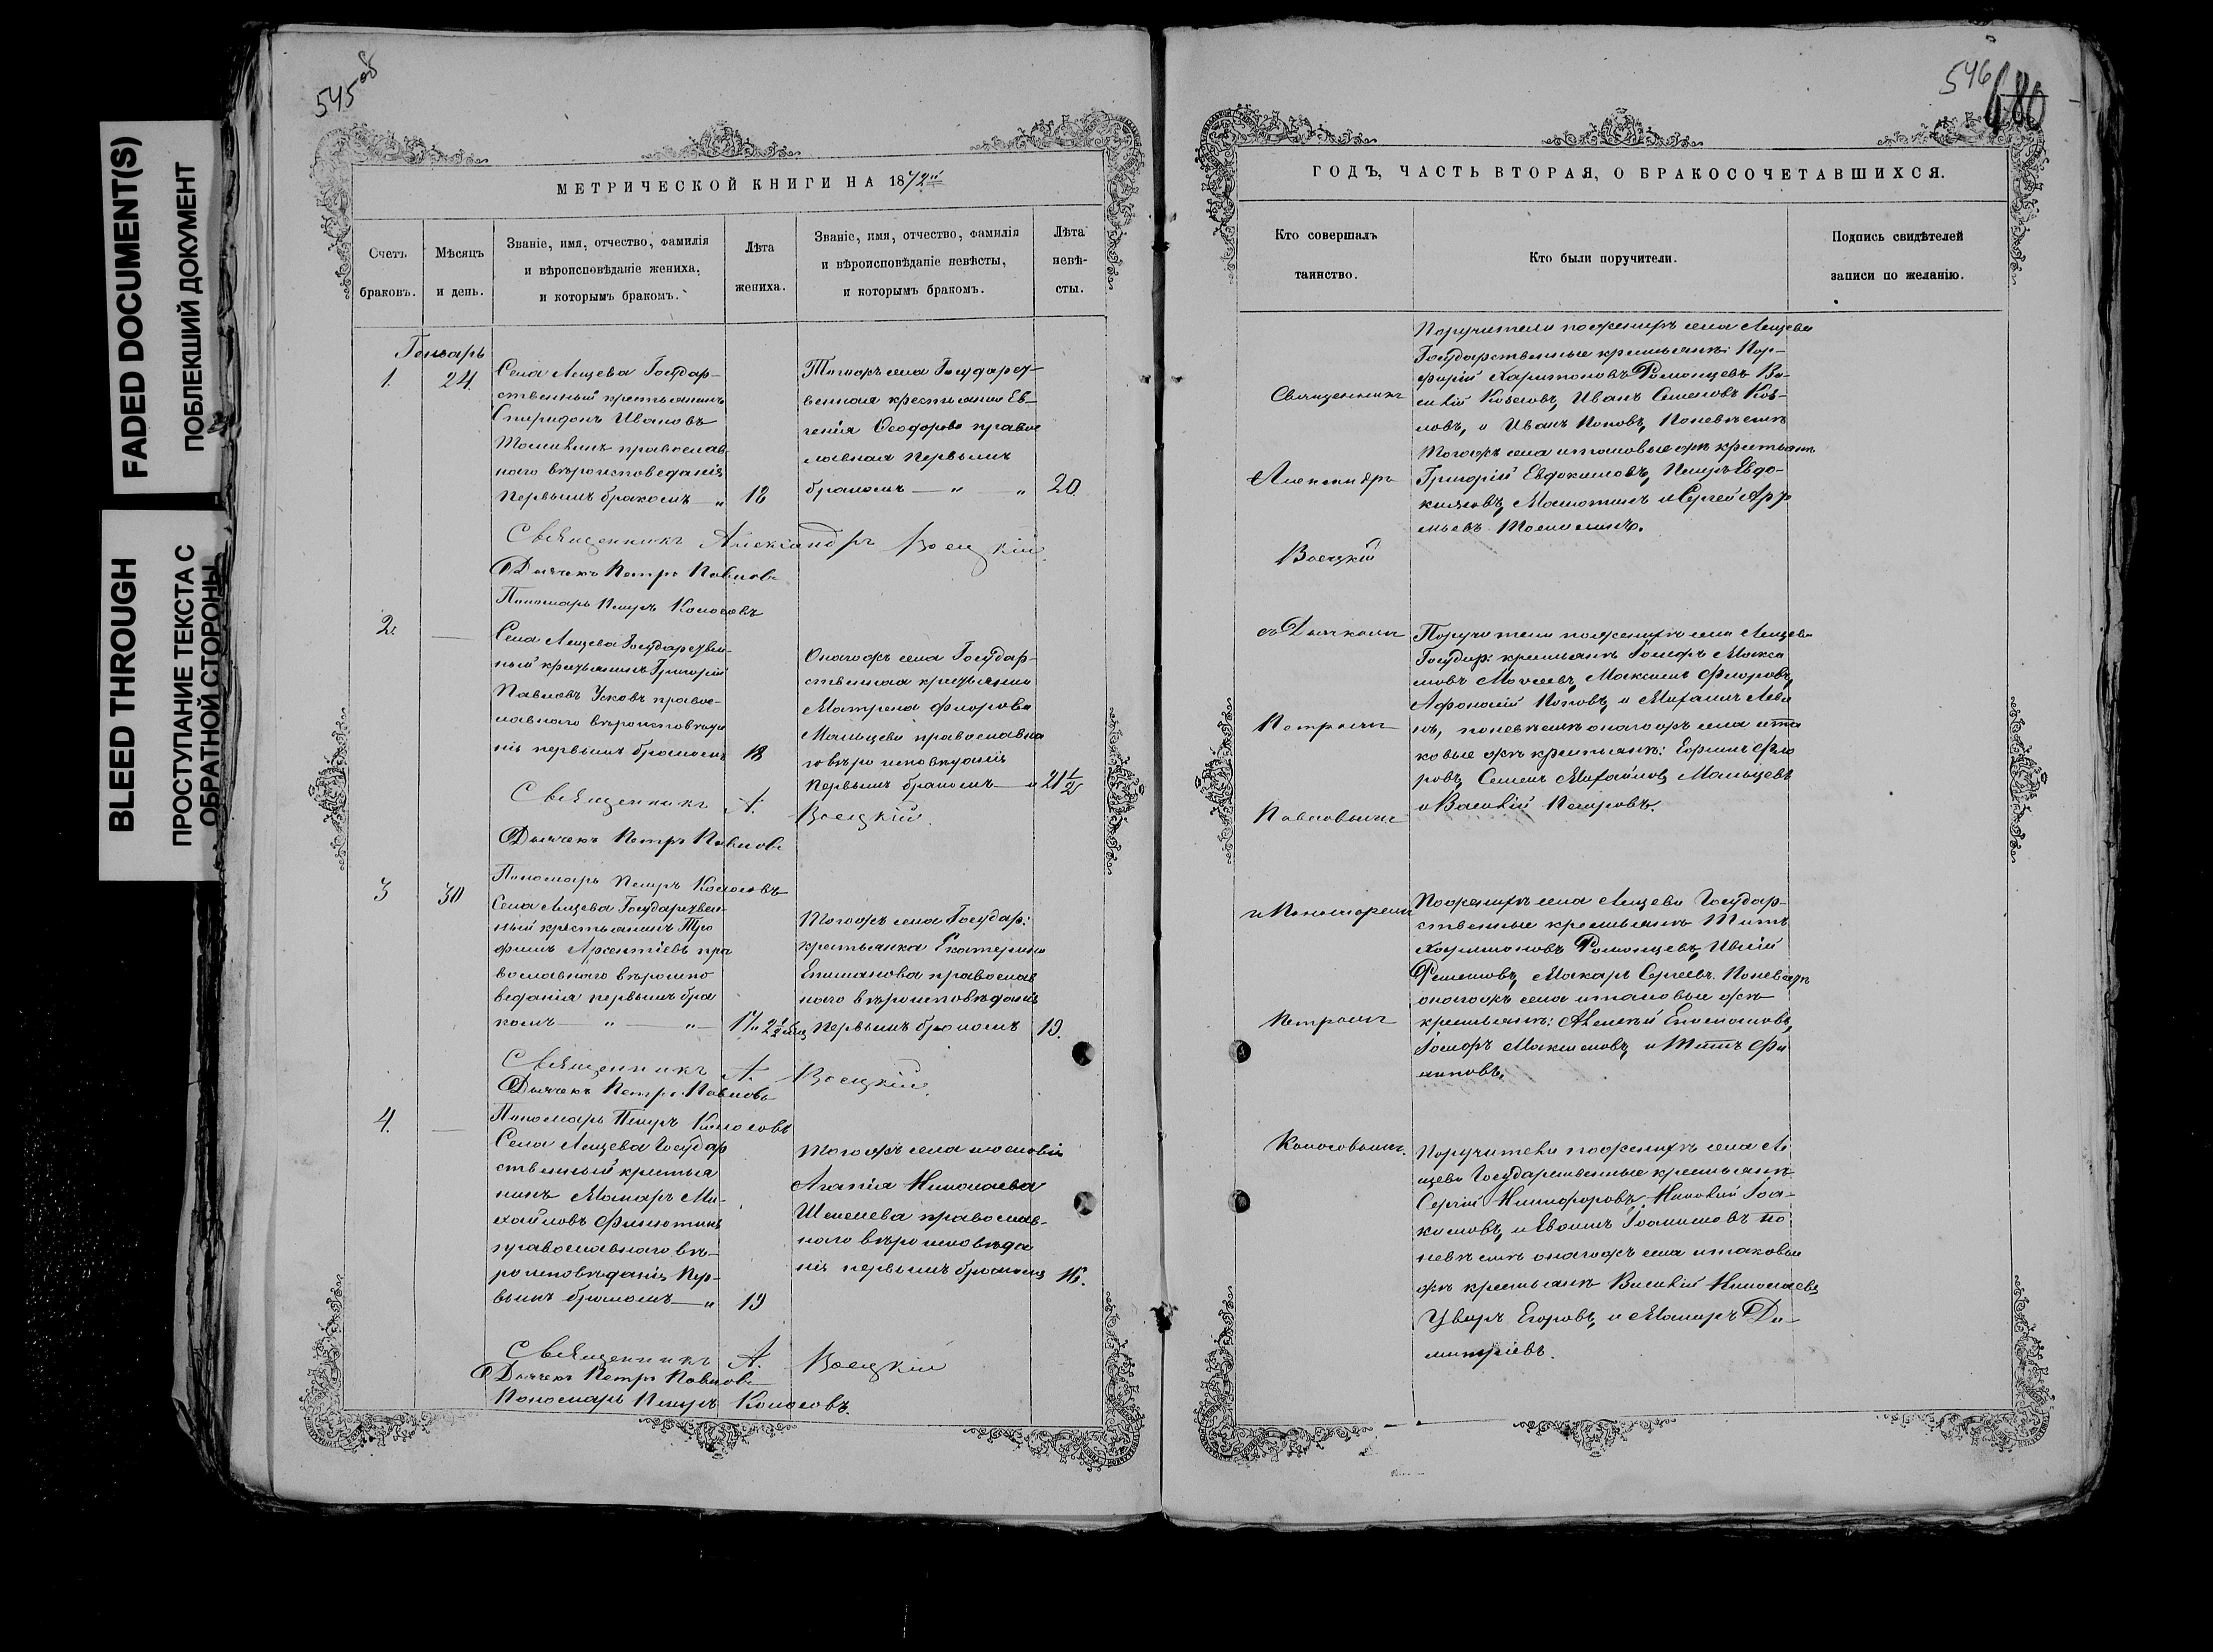 545 об
546
480
FADED DOCUMENT(S)
ПОБЛЕКШИЙ ДОКУМЕНТ
BLEED THROUGH
ПРОСТУПАНИЕ ТЕКСТА С
ОБРАТНОЙ СТОРОНЫ
МЕТРИЧЕСКОЙ КНИГИ НА 1872й
Счетъ
браковъ.
Мѣсяцъ
и день.
Званіе, имя, отчество, фамилія
и вѣроисповѣданіе жениха,
и которымъ бракомъ.
Лѣта
жениха.
Званіе, имя, отчество, фамилія
и вѣроисповѣданіе невѣсты,
и которымъ бракомъ.
Лѣта
невѣ-
сты.
Генварь
1.
24.
Села Лещева Государ-
ственный крестьянинъ
Спиридонъ Ивановъ
православ-
наго вѣроисповеданія
первымъ бракомъ
18
Тогожъ села Государст-
венная крестьянка Ев-
генія Феодорова правос
лавная первымъ
бракомъ
20
Священникъ Александръ Воецкій
Дьячекъ Петръ Павловъ
Пономарь Петръ Колосовъ
2.
Села Лещева Государствен-
ный крестьянинъ Григорій
Павловъ Усковъ правос-
лавнаго вѣроисповѣда
нія первымъ бракомъ
18
Онагожъ села Государ-
ственная крестьянка
Матрена Флорова
Мальцева православна
го вѣроисповѣданія
первымъ бракомъ
21 1/2
Священникъ А. Воецкій
Дьячекъ Петръ Павловъ
Пономарь Петръ Колосовъ
3
30
Села Лещева Государствен-
ный крестьянинъ Тро
фимъ Арсентіевъ пра
вославнаго вѣроиспо
веданія первымъ бра
комъ
Тогожъ села Государ:
крестьянка Екатерина
Епиманова православ
наго вѣроисповѣданія
первымъ бракомъ
19.
Священникъ А. Воецкій
Дьячекъ Петръ Павловъ
Пономарь Петръ Колосовъ
4.
Села Лещева Государ
ственный крестья
нинъ Макаръ Ми-
хайловъ
православнаго вѣ-
роисповѣданія пер-
вымъ бракомъ
19
Тогожъ села
Агапія Николаева
Шемелева православ-
наго вѣроисповѣда
нія первымъ бракомъ
16.
Священникъ А. Воецкій
Дьячекъ Петръ Павловъ
Пономарь Петръ Колосовъ.
ГОДЪ, ЧАСТЬ ВТОРАЯ, О БРАКОСОЧЕТАВШИХСЯ.
Кто совершалъ
таинство.
Кто были поручители.
Подпись свидѣтелей
записи по желанію.
Священникъ
Александръ
Воецкій
съ Дьячкомъ
Петромъ
Павловымъ
и Пономаремъ
Петромъ
Колосовымъ.
Поручители поженихѣ села Лещева
Государственные крестьяне: Пор-
фирій Харитоновъ Романцевъ Ва-
силій Иванъ Семеновъ
и Иванъ Поповъ, Поневѣстѣ
Тогожъ села итаковыежъ крестьяне
Григорій Евдокимовъ, Петръ Евдо-
кимовъ, и Сергей
Поручители поженихѣ села Лещева
Государ: крестьяне Макси
мовъ Максимъ Флоровъ,
Афонасій Поповъ, и Михаилъ
поневѣстѣ онагожъ села ита
ковые жъ крестьяне: Ефимъ Фло
ровъ, Семенъ Михайловъ Мальцевъ
и Василій Петровъ.
Поженихѣ села Лещева Государ-
ственные крестьяне Титъ
Харитоновъ Романцевъ,
Макаръ Сергеевъ. Поневѣстѣ
онагожъ села итаковые жъ
крестьяне: Алексѣй Епимановъ,
Максимовъ, и Титъ Фи
липповъ.
Поручители поженихѣ села Ле
щева Государственные крестьяне
Сергій Никифоровъ, Николай Іоа-
кимовъ, по
невѣстѣ онагожъ села итаковые
жъ крестьяне Василій Николаевъ
Уваръ Егоровъ, и Макаръ Ди-
митріевъ.